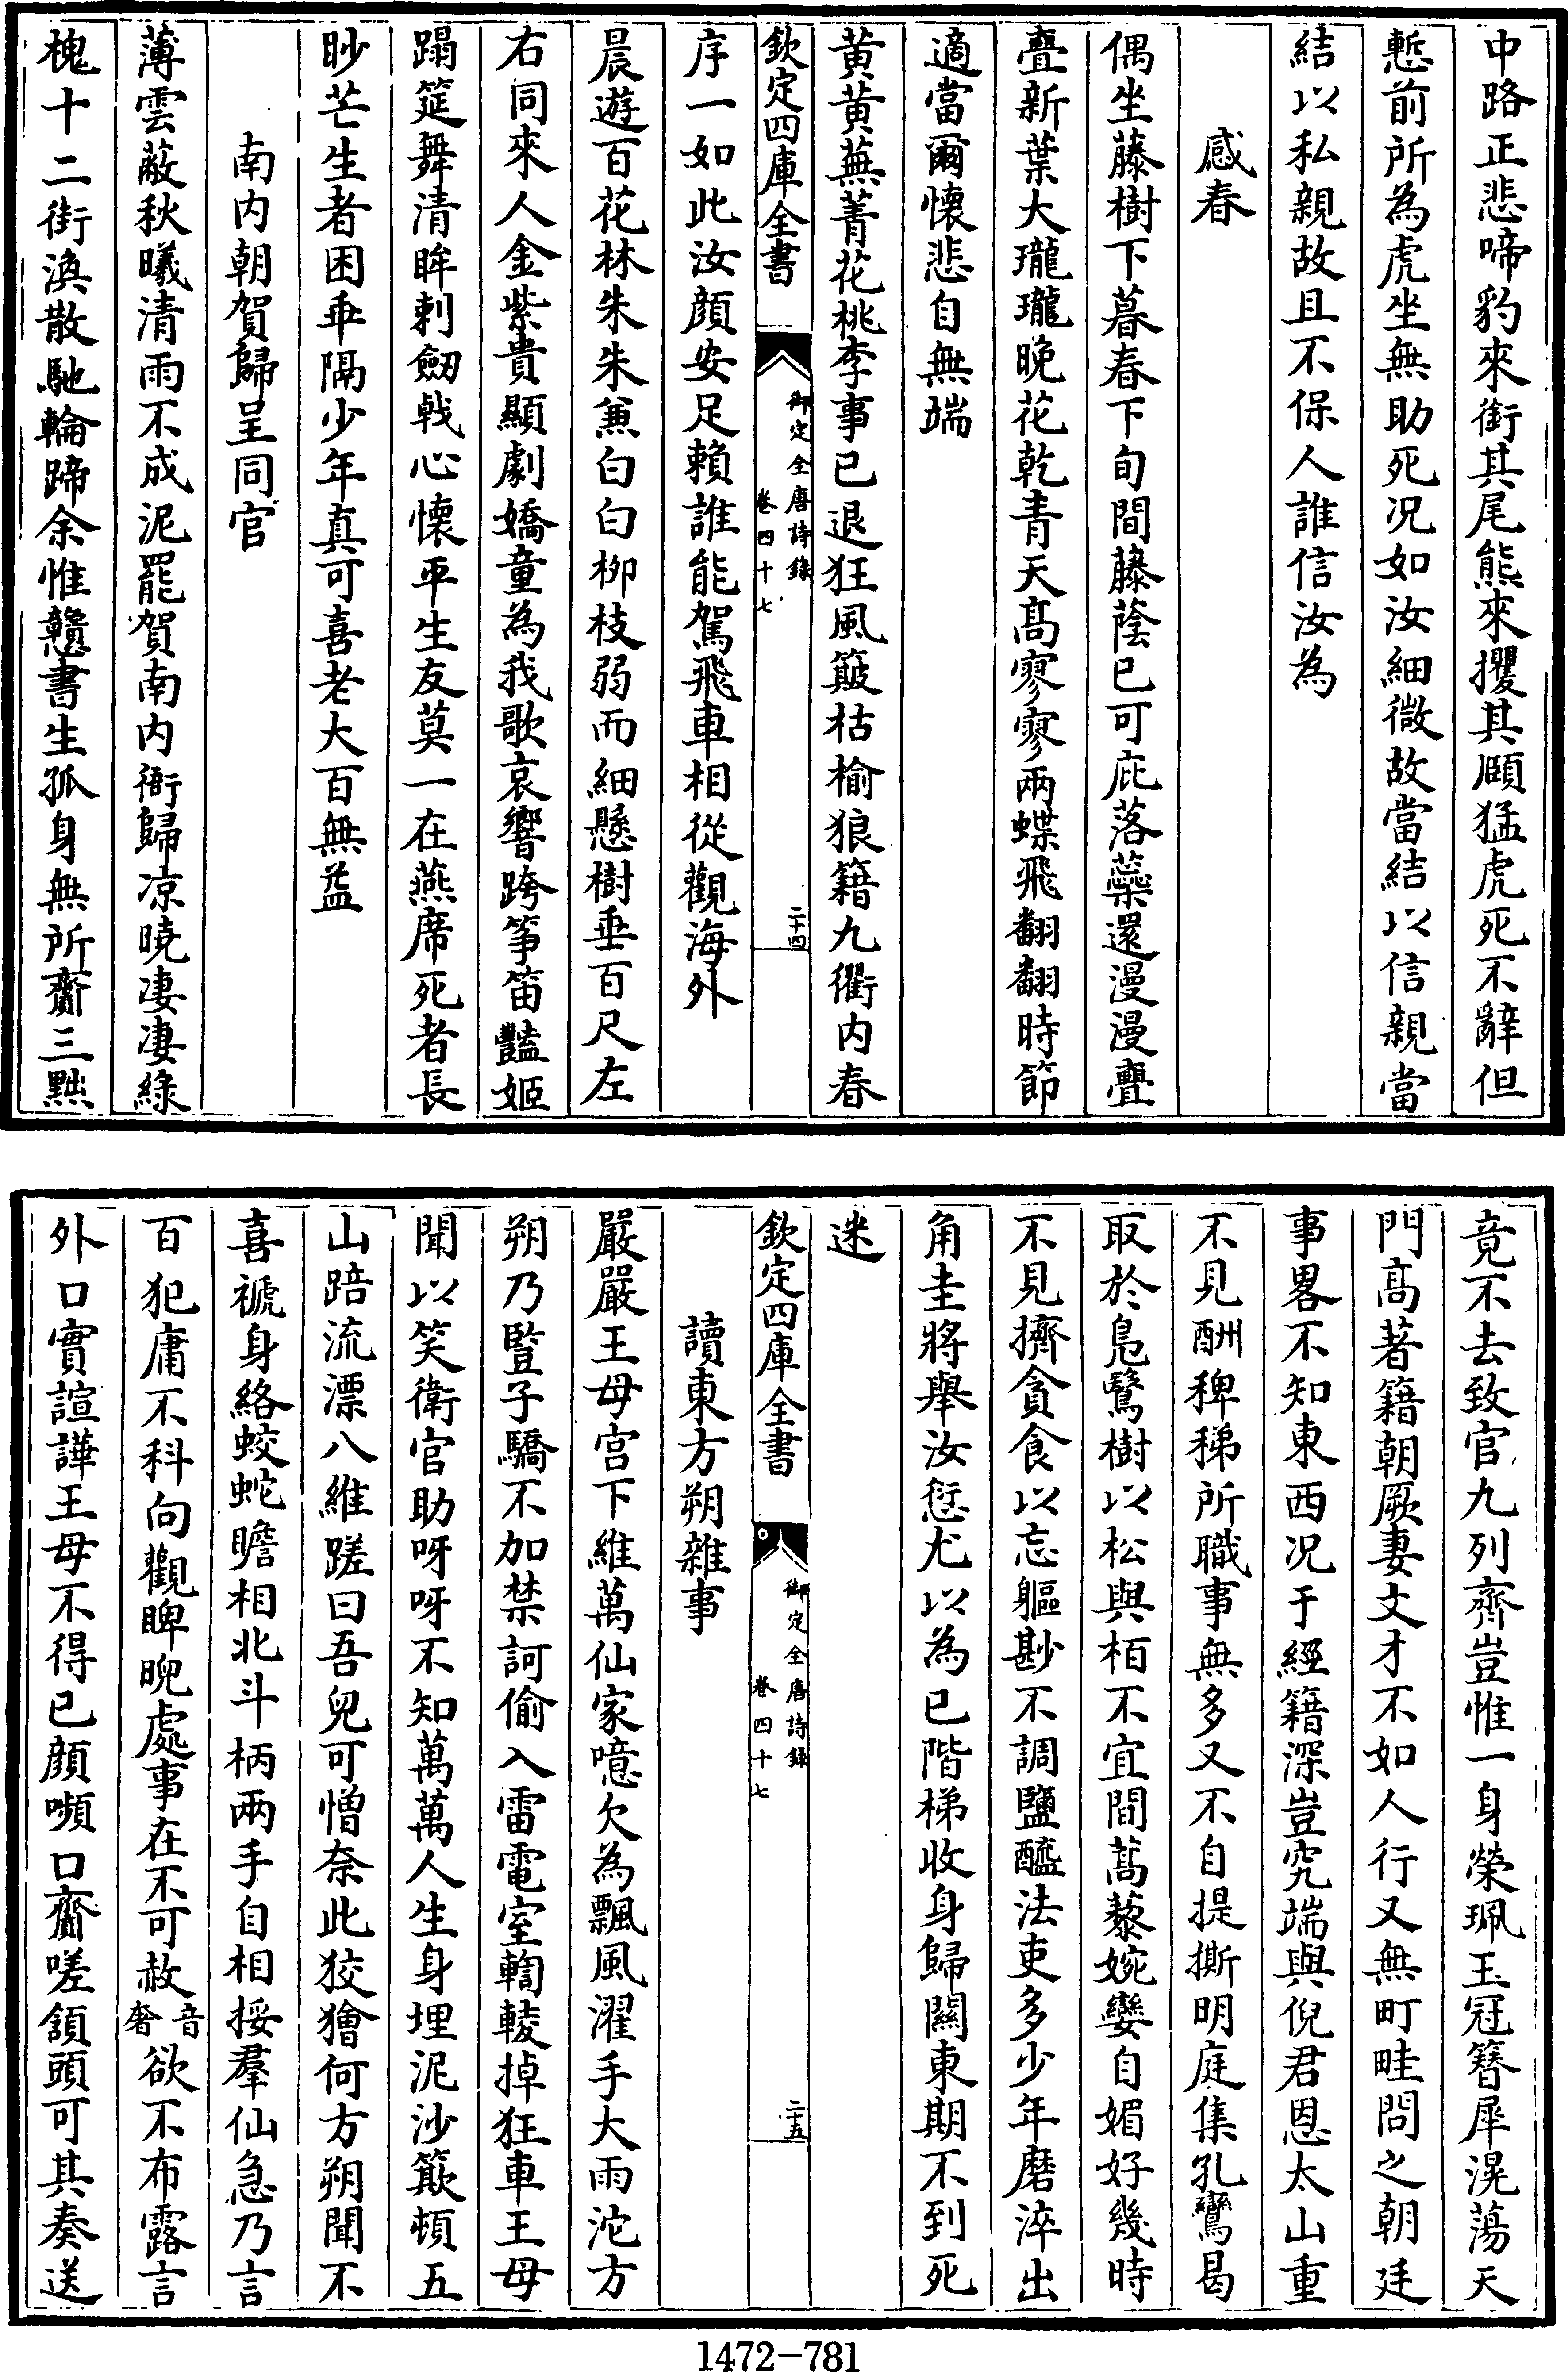 中路正悲啼豹來銜其尾熊來攫其頤猛虎死不辭但
慙前所為虎坐無助死况如汝細微故當結以信親當
結以私親故且不保人誰信汝為
感春
偶坐藤樹下暮春下旬間藤蔭已可庇落蘂還漫漫亹
亹新葉大瓏瓏晚花乾青天髙寥寥兩蝶飛翻翻時節
適當爾懷悲自無端
黄黄蕪菁花桃李事已退狂風簸枯榆狼籍九衢内春
欽定四庫全書
御定全唐詩錄
卷四十七
二十四
序一如此汝顔安足賴誰能駕飛車相從觀海外
晨遊百花林朱朱兼白白栁枝弱而細懸樹垂百尺左
右同來人金紫貴顯劇嬌童為我歌哀響跨筝笛豔姬
蹋筵舞清眸刺劒戟心懷平生友莫一在燕席死者長
眇芒生者困乖隔少年真可喜老大百無益
南内朝賀歸呈同官
薄雲蔽秋曦清雨不成泥罷賀南内衙歸凉曉凄凄綠
槐十二街渙散馳輪蹄余惟戇書生孤身無所齎三黜
竟不去致官九列齊豈惟一身榮珮玉冠簪犀滉蕩天
門髙著籍朝厥妻文才不如人行又無町畦問之朝廷
事畧不知東西况于經籍深豈究端與倪君恩太山重
不見酬稗稊所職事無多又不自提撕明庭集孔鸞曷
取於鳧鷖樹以松與栢不宜間蒿藜婉孌自媚好幾時
不見擠貪食以忘軀尠不調鹽醯法吏多少年磨淬出
角圭將舉汝愆尤以為已階梯收身歸關東期不到死
迷
欽定四庫全書
御定全唐詩錄
卷四十七
二十五
讀東方朔雜事
嚴嚴王母宫下維萬仙家噫欠為飄風濯手大雨沱方
朔乃豎子驕不加禁訶偷入雷電室輷輘掉狂車王母
聞以笑衛官助呀呀不知萬萬人生身埋泥沙簸頓五
山踣流漂八維蹉曰吾兒可憎奈此狡獪何方朔聞不
喜褫身絡蛟蛇瞻相北斗柄兩手自相挼羣仙急乃言
百犯庸不科向觀睥睨處事在不可赦音奢欲不布露言
外口實諠譁王母不得已顔嚬口齎嗟頷頭可其奏送
1472-781